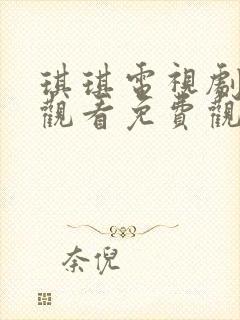 琪琪電視劇
觀看免費觀
奈倪